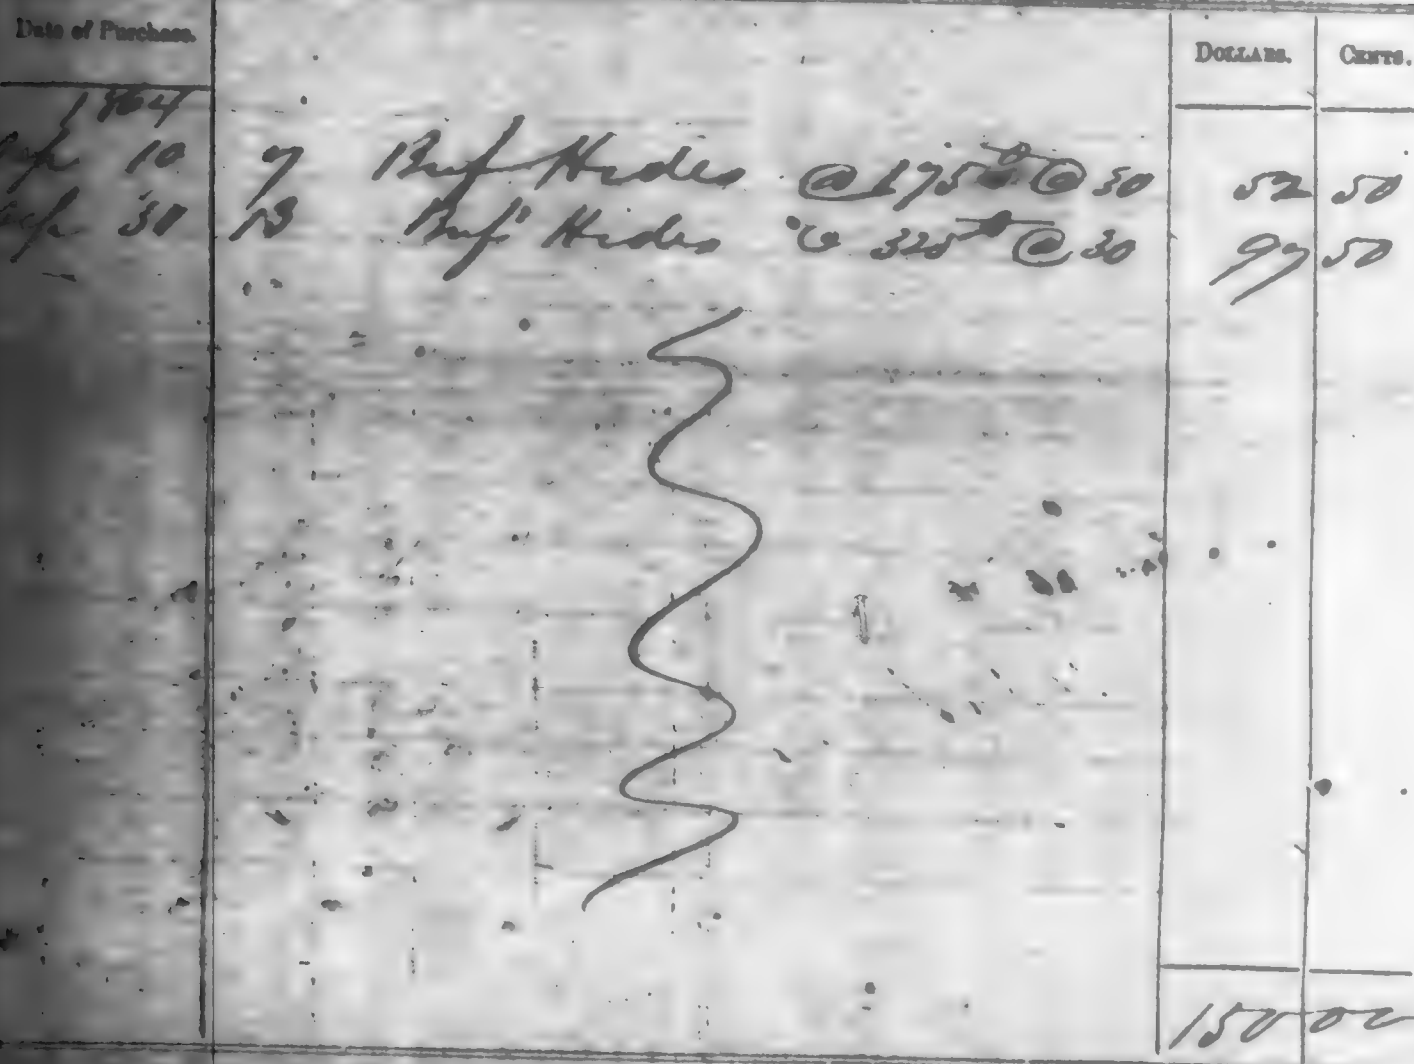 Date of Purchase. DOLLARS. CENTS.
1864
Sep 10 7 Beef Hides @ 175 @ 30 52 50
Sep 30 13 Beef Hides @ 325 @ 30 97 50
150 00